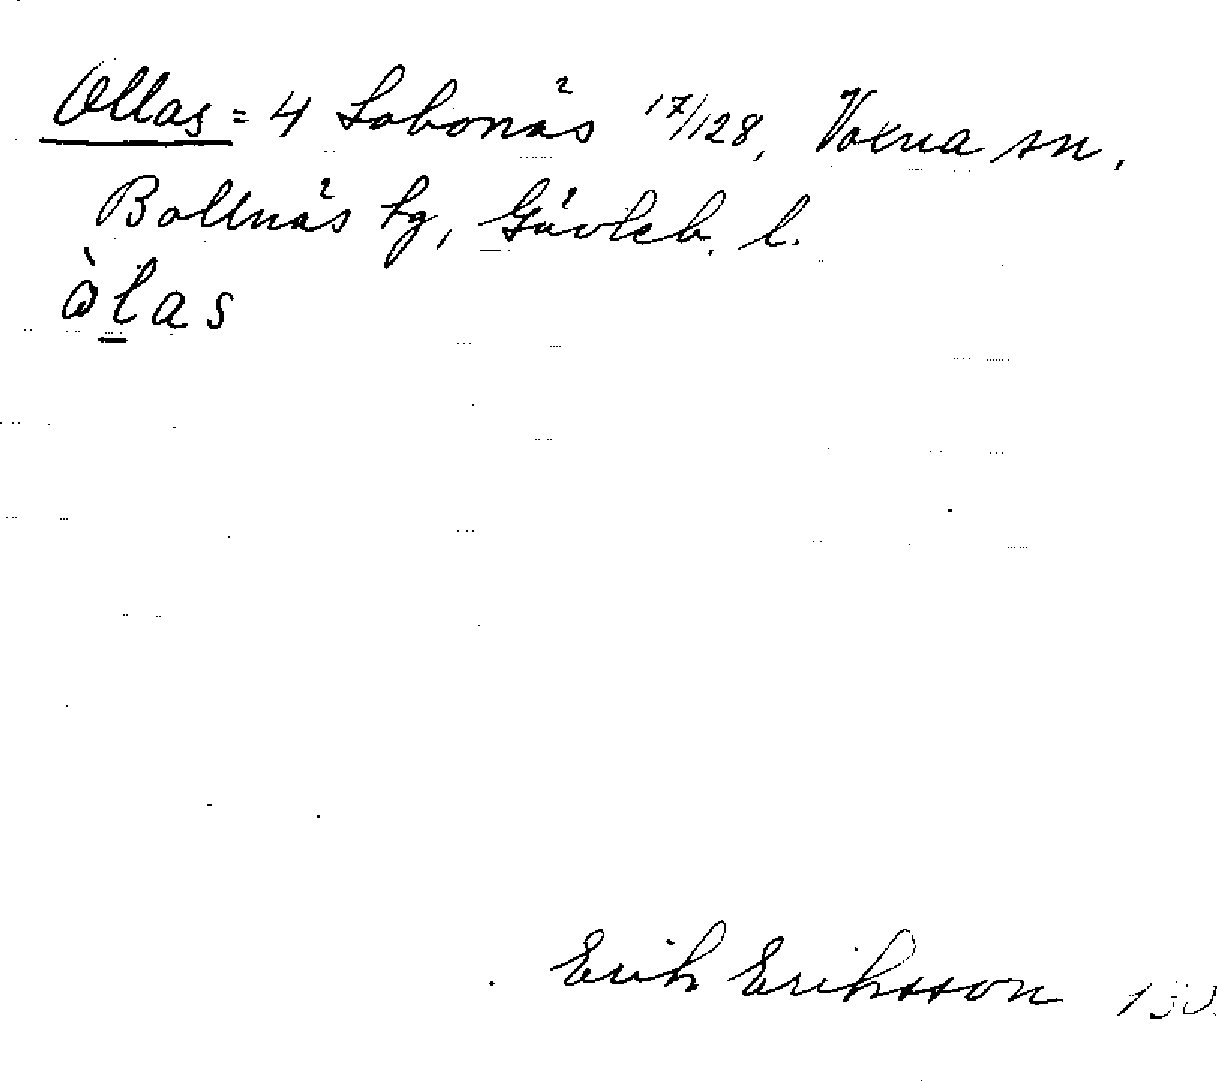 Ollas = 4 Lobonäs 17/128, Voxna sn,
Bollnäs tg, Gävleb. l.
òlas
Erik Eriksson